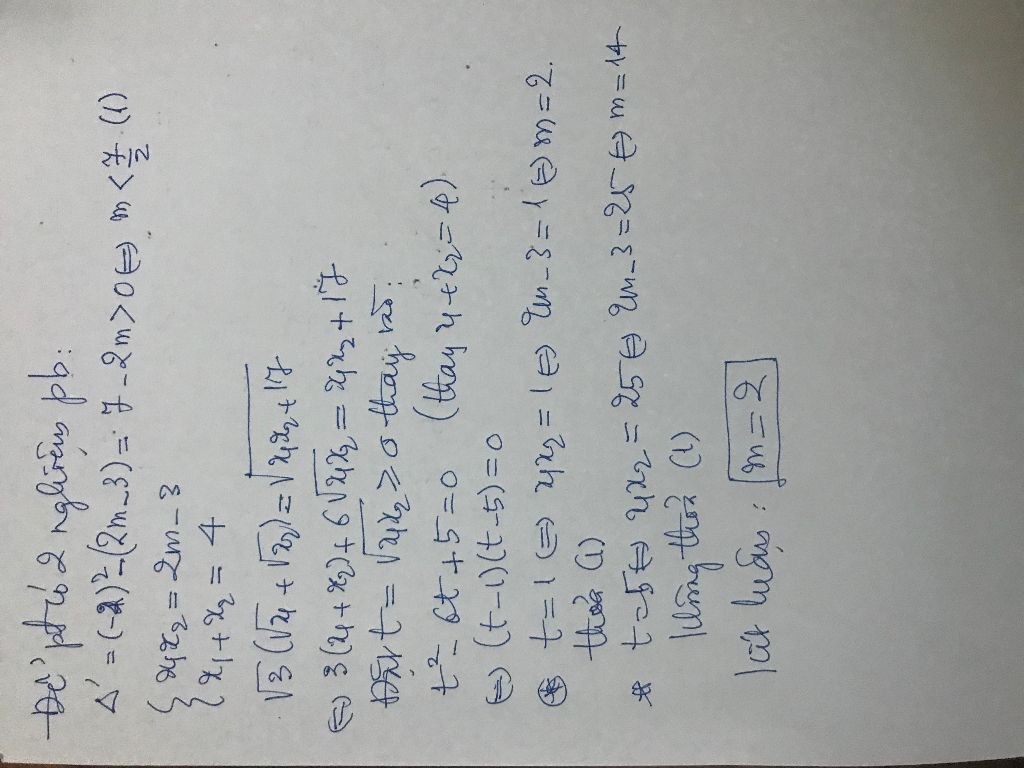 Để pt có 2 nghiệm pb:
Δ' = (-2)² - (2m-3) = 7 - 2m > 0 ⇔ m < 7/2 (1)
{ x₁x₂ = 2m - 3
{ x₁ + x₂ = 4
√3(√x₁ + √x₂) = √(x₁x₂ + 17)
⇔ 3(x₁ + x₂) + 6√(x₁x₂) = x₁x₂ + 17
Đặt t = √(x₁x₂) ≥ 0 thay vào:
t² - 6t + 5 = 0 (thay x₁ + x₂ = 4)
⇔ (t-1)(t-5) = 0
* t = 1 ⇔ x₁x₂ = 1 ⇔ 2m - 3 = 1 ⇔ m = 2.
thoả (1)
* t = 5 ⇔ x₁x₂ = 25 ⇔ 2m - 3 = 25 ⇔ m = 14
không thoả (1)
Kết luận: m = 2